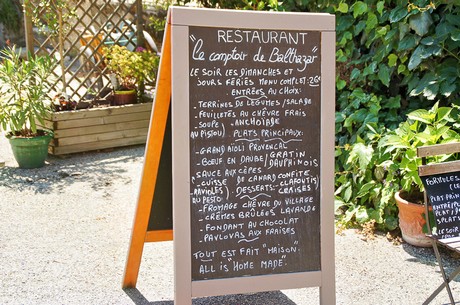 RESTAURANT
"le comptoir de Balthazar"
LE SOIR LES DIMANCHES ET
JOURS FÉRIÉS MENU COMPLET 26€
ENTRÉES AU CHOIX
- TERRINES DE LÉGUMES/SALADE
- FEUILLETÉ AU CHÈVRE FRAIS
- SOUPE - ANCHOIADE
AU PISTOU PLATS PRINCIPAUX
- GRAND AÏOLI PROVENÇAL
- BOEUF EN DAUBE/GRATIN
SAUCE AUX CÈPES DAUPHINOIS
- CUISSE DE CANARD CONFITE
RAVIOLES CLAFOUTIS
AU PESTO DESSERTS CERISES
- FROMAGE CHÈVRE DU VILLAGE
- CRÈMES BRÛLÉES LAVANDE
- FONDANT AU CHOCOLAT
- PAVLOVAS AUX FRAISES
TOUT EST FAIT "MAISON"
ALL IS "HOME MADE"
FORMULES
PLAT